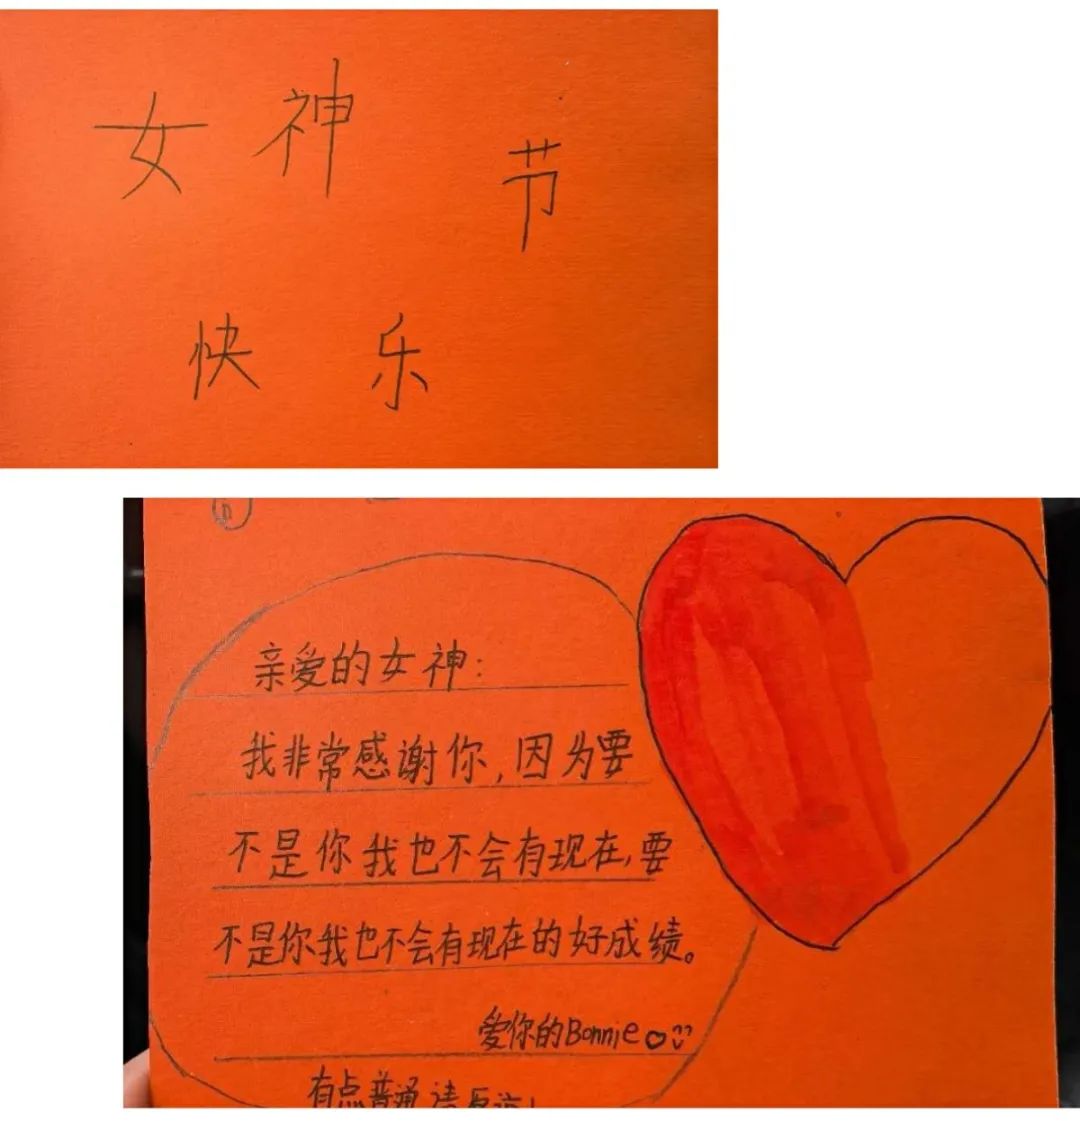 女神节
快乐
亲爱的女神:
我非常感谢你,因为要
不是你我也不会有现在,要
不是你我也不会有现在的好成绩。
爱你的Bonnie
有点普通请